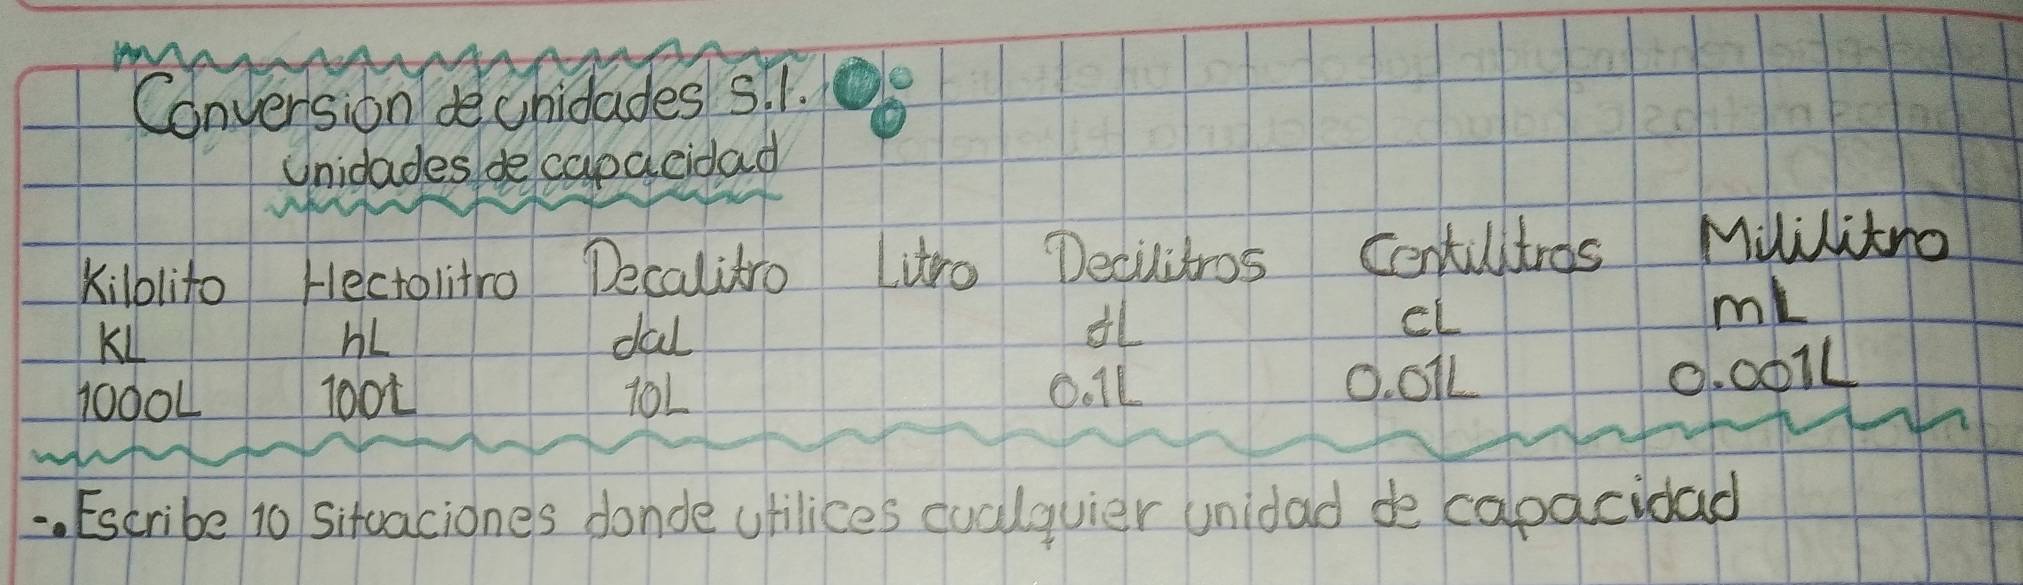 Conversion de unidades S.I.
unidades de capacidad
Kilolito Hectolitro Decalitro Litro Decilitros Centilitros Mililitro
KL hL dal dL cL mL
1000L 100L 10L 0.1L 0.01L 0.001L
-. Escribe 10 situaciones donde utilices cualquier unidad de capacidad